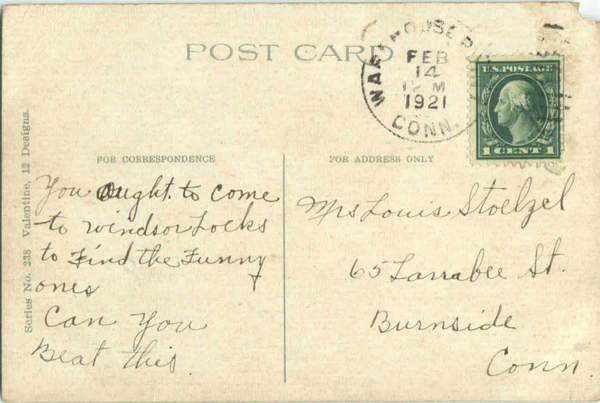 POST CARD
WAREHOUSE P
FEB
14
M
1921
CONN.
U.S. POSTAGE
1 CENT 1
Series No. 238 Valentine, 12 Designs.
FOR CORRESPONDENCE
You Ought to come
to Windsor Locks
to Find the Funny
ones
Can You
Beat this.
FOR ADDRESS ONLY
Mrs Louis Stoelzel
65 Larrabee St.
Burnside
Conn.